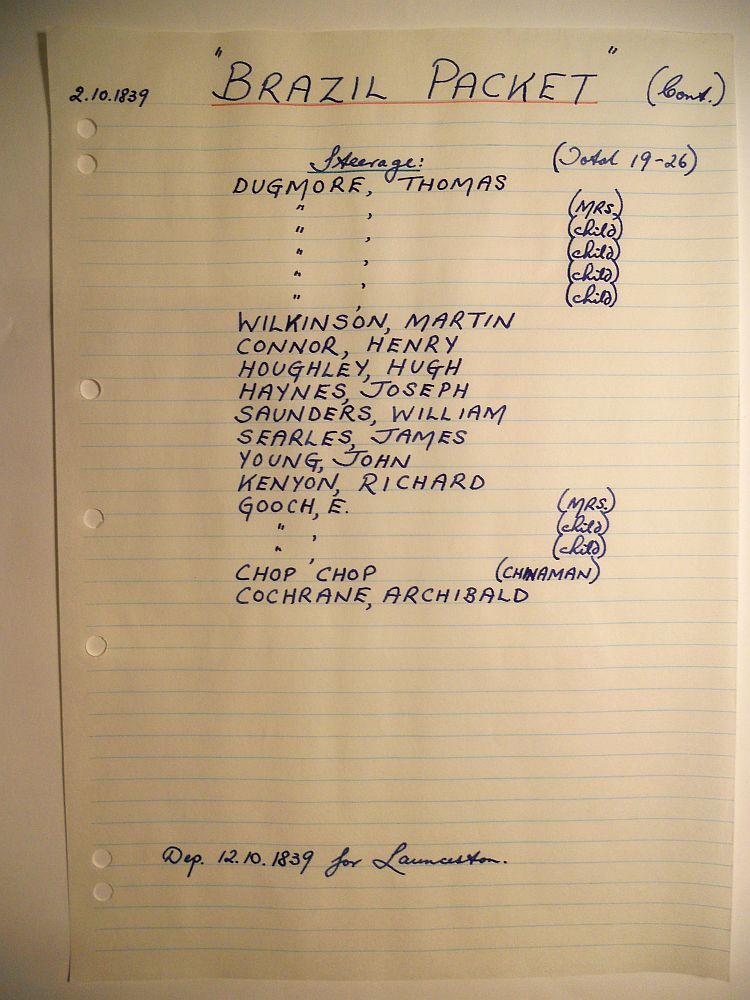 2.10.1839 "BRAZIL PACKET" (Cont.)
Steerage: (Total 19-26)
DUGMORE, THOMAS
" , (MRS.)
" , (child)
" , (child)
" , (child)
" , (child)
WILKINSON, MARTIN
CONNOR, HENRY
HOUGHLEY, HUGH
HAYNES, JOSEPH
SAUNDERS, WILLIAM
SEARLES, JAMES
YOUNG, JOHN
KENYON, RICHARD
GOOCH, E. (MRS.)
" , (child)
" , (child)
CHOP CHOP (CHINAMAN)
COCHRANE, ARCHIBALD
Dep. 12.10.1839 for Launceston.